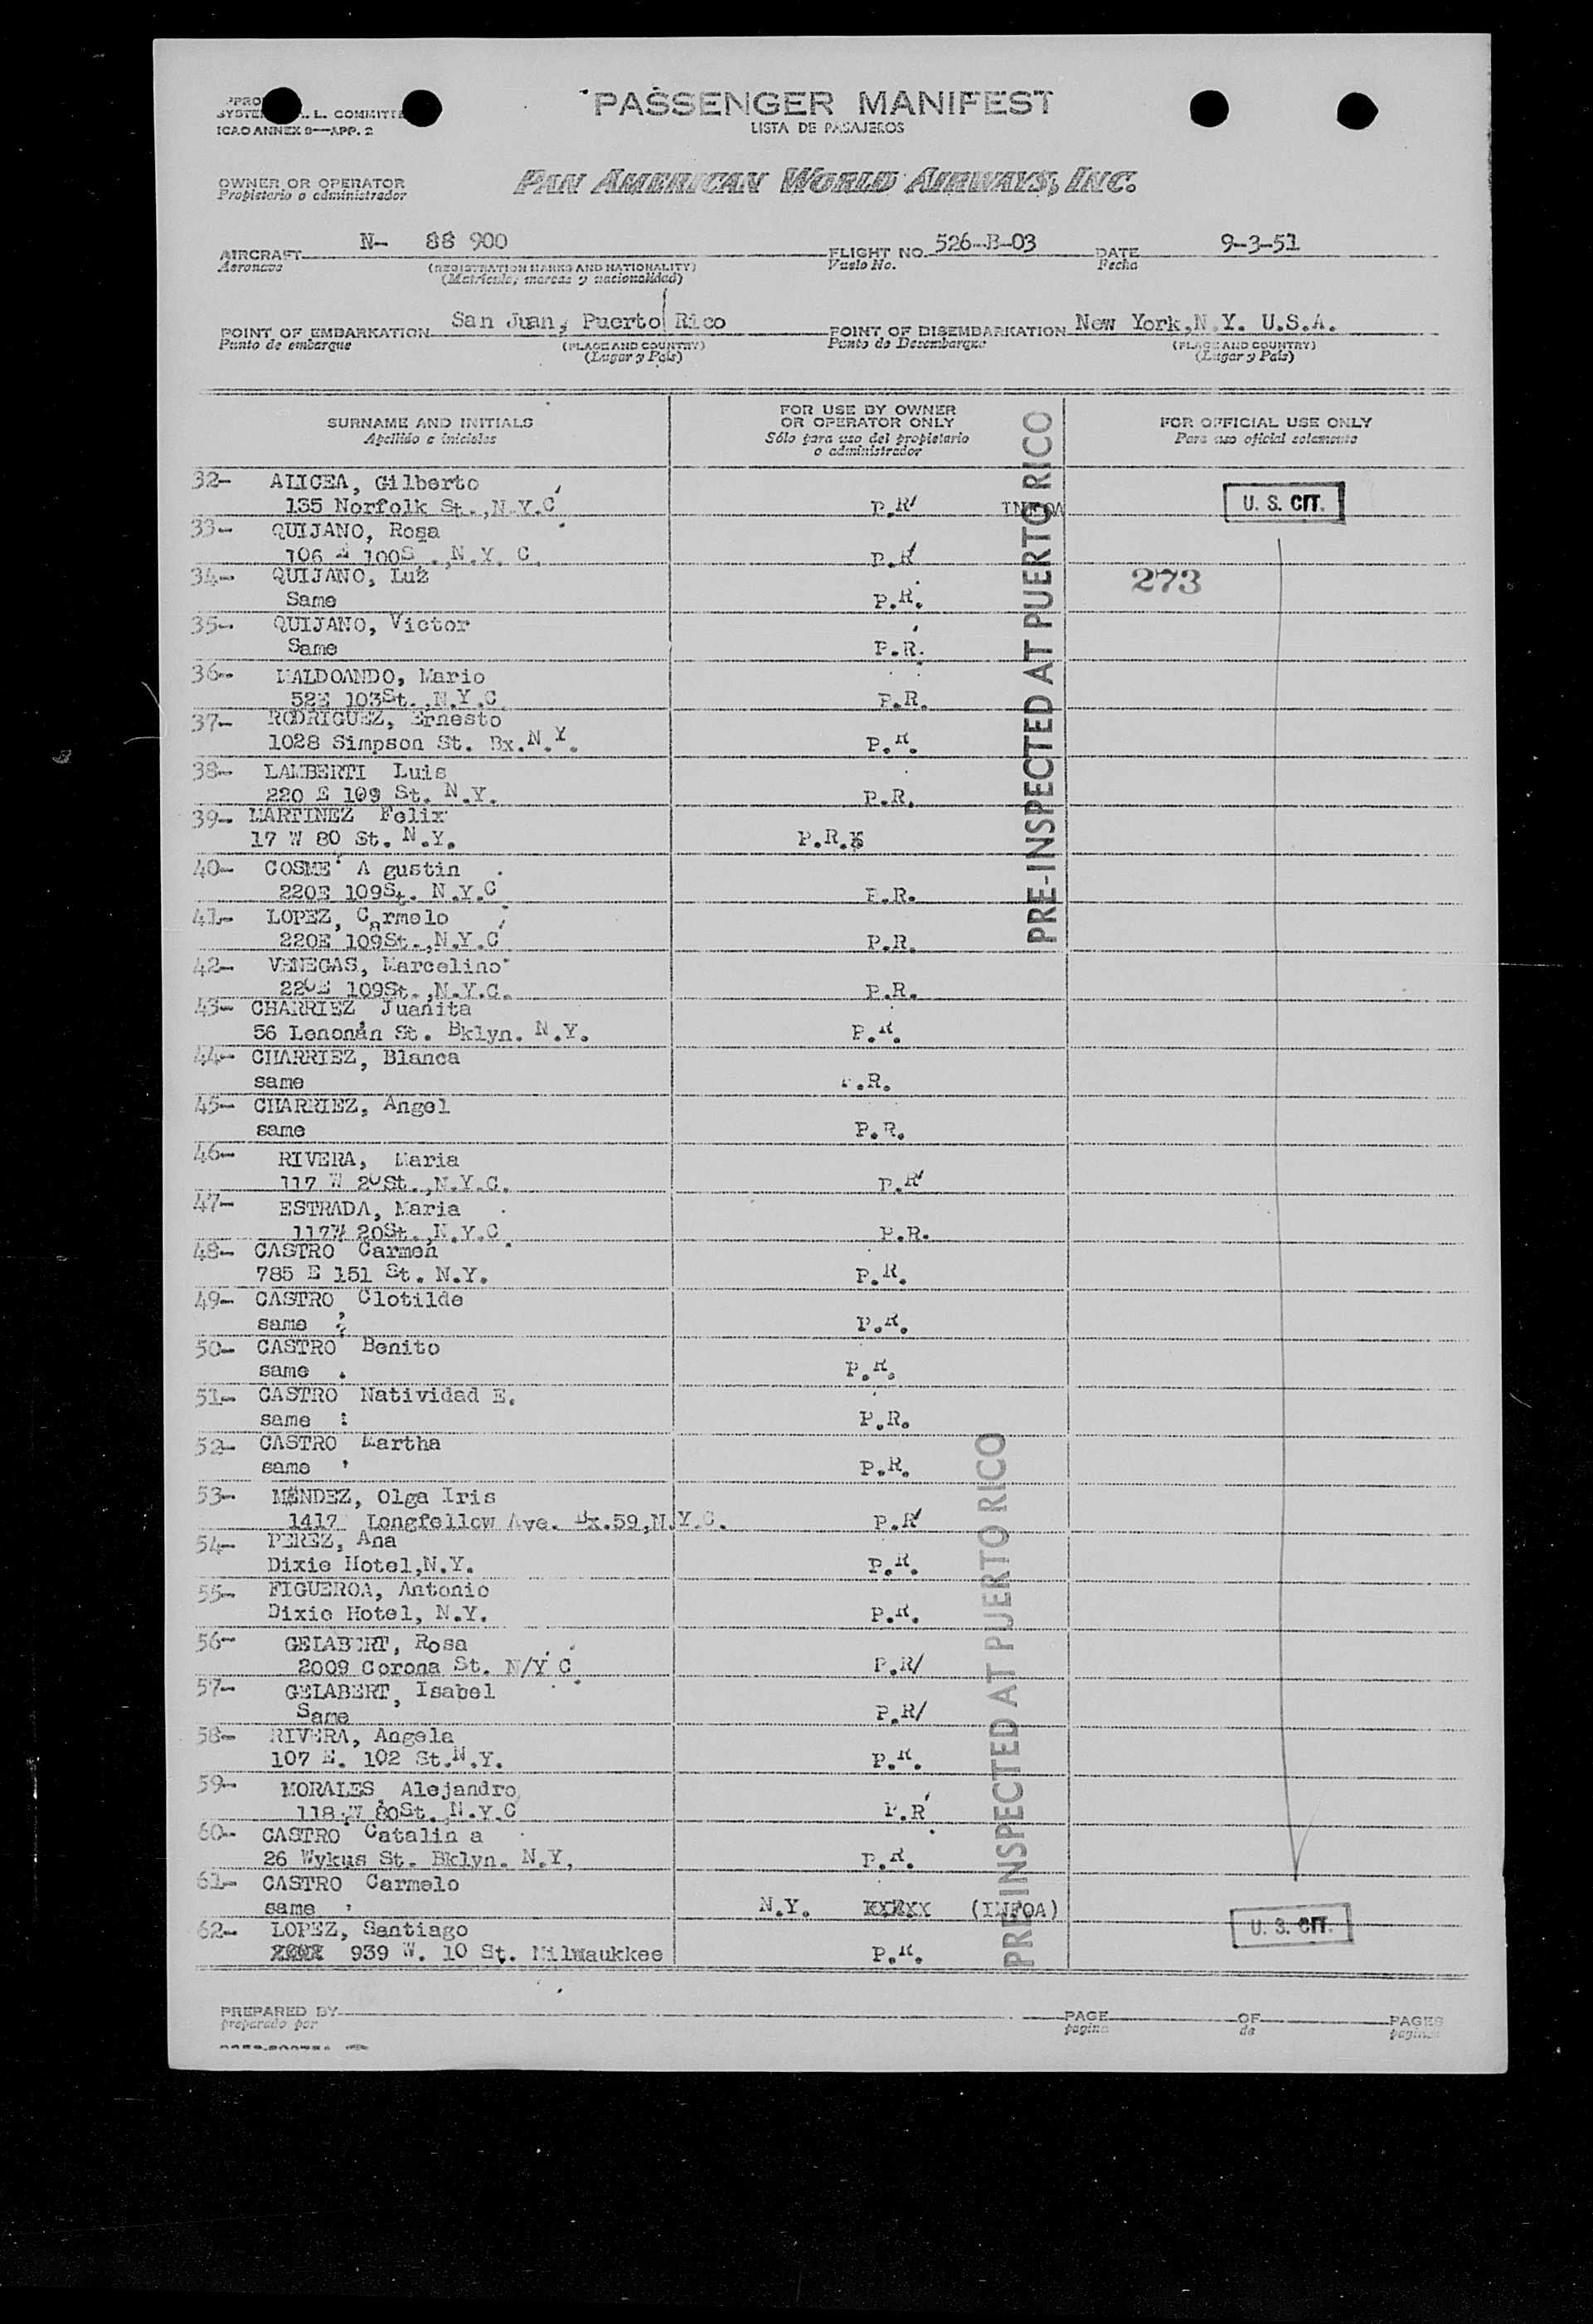 PASSENGER MANIFEST
LISTA DE PASAJEROS
ICAO ANNEX 9—APP. 2
OWNER OR OPERATOR
Propietario o administrador
PAN AMERICAN WORLD AIRWAYS, INC.
AIRCRAFT N- 88 900 FLIGHT NO. 526-B-03 DATE 9-3-51
Aeronave (REGISTRATION MARKS AND NATIONALITY) Vuelo No. Fecha
(Matricula, marcas y nacionalidad)
POINT OF EMBARKATION San Juan, Puerto Rico POINT OF DISEMBARKATION New York,N.Y. U.S.A.
Punto de embarque (PLACE AND COUNTRY) Punto de Desembarque (PLACE AND COUNTRY)
(Lugar y País) (Lugar y País)
SURNAME AND INITIALS FOR USE BY OWNER OR OPERATOR ONLY FOR OFFICIAL USE ONLY
Apellido e iniciales Sólo para uso del propietario o administrador Para uso oficial solamente
32- ALICEA, Gilberto
135 Norfolk St.,N.Y.C P.R U. S. CIT.
33- QUIJANO, Rosa
106 100S .,N.Y. C. P.R
34- QUIJANO, Luz 273
Same P.R.
35- QUIJANO, Victor
Same P.R.
36- MALDOANDO, Mario
52E 103St.,N.Y.C. P.R.
37- RODRIGUEZ, Ernesto
1028 Simpson St. Bx.N.Y. P.R.
38- LAMBERTI Luis
220 E 109 St. N.Y. P.R.
39- MARTINEZ Felix
17 W 80 St. N.Y. P.R.
40- COSME A gustin
220E 109St. N.Y.C P.R.
41- LOPEZ, Carmelo
220E 109St.,N.Y.C P.R.
PRE-INSPECTED AT PUERTO RICO
42- VENEGAS, Marcelino
220E 109St.,N.Y.C. P.R.
43- CHARRIEZ Juanita
56 Lenonan St. Bklyn. N.Y. P.R.
44- CHARRIEZ, Blanca
same P.R.
45- CHARRIEZ, Angel
same P.R.
46- RIVERA, Maria
117 W 20St.,N.Y.C. P.R
47- ESTRADA, Maria
117W 20St.,N.Y.C P.R.
48- CASTRO Carmen
785 E 151 St. N.Y. P.R.
49- CASTRO Clotilde
same P.R.
50- CASTRO Benito
same P.R.
51- CASTRO Natividad E.
same P.R.
52- CASTRO Martha
same P.R.
53- MENDEZ, Olga Iris
1417 Longfellow Ave. Bx.59,N.Y.C. P.R
54- PEREZ, Ana
Dixie Hotel,N.Y. P.R.
55- FIGUEROA, Antonio
Dixie Hotel, N.Y. P.R.
56- GELABERT, Rosa
2009 Corona St. N/Y C P.R/
57- GELABERT, Isabel
Same P.R/
58- RIVERA, Angela
107 E. 102 St.N.Y. P.R.
59- MORALES, Alejandro
118 W 80St.,N.Y.C P.R
60- CASTRO Catalin a
26 Wykus St. Bklyn. N.Y. P.R.
61- CASTRO Carmelo
same N.Y. (INFOA)
62- LOPEZ, Santiago U. S. CIT.
939 W. 10 St. Milwaukkee P.R.
PRE-INSPECTED AT PUERTO RICO
PREPARED BY PAGE OF PAGES
preparado por pagina de paginas